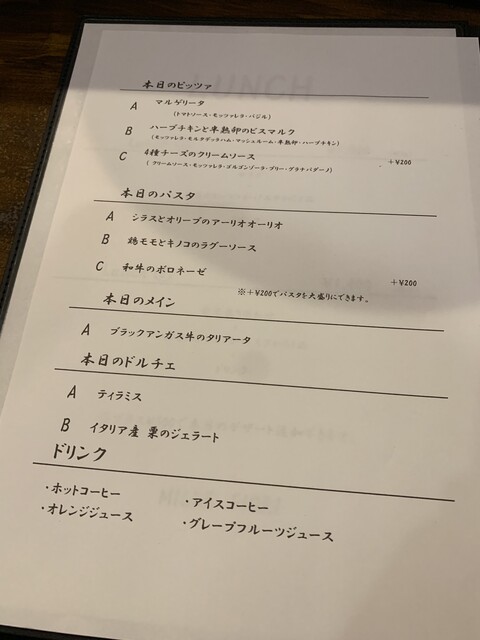 本日のピッツァ
A マルゲリータ
(トマトソース・モッツァレラ・バジル)
B ハーブチキンと半熟卵のビスマルク
(モッツァレラ・モルタデッラハム・マッシュルーム・半熟卵・ハーブチキン)
C 4種チーズのクリームソース +¥200
(クリームソース・モッツァレラ・ゴルゴンゾーラ・ブリー・グラナパダーノ)
本日のパスタ
A シラスとオリーブのアーリオオーリオ
B 鶏モモとキノコのラグーソース
C 和牛のボロネーゼ +¥200
※+¥200でパスタを大盛りにできます。
本日のメイン
A ブラックアンガス牛のタリアータ
本日のドルチェ
A ティラミス
B イタリア産 栗のジェラート
ドリンク
・ホットコーヒー ・アイスコーヒー
・オレンジジュース ・グレープフルーツジュース